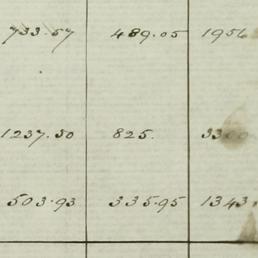 733.57 489.05 1956
1237.50 825. 3300
503.93 335.95 1343.